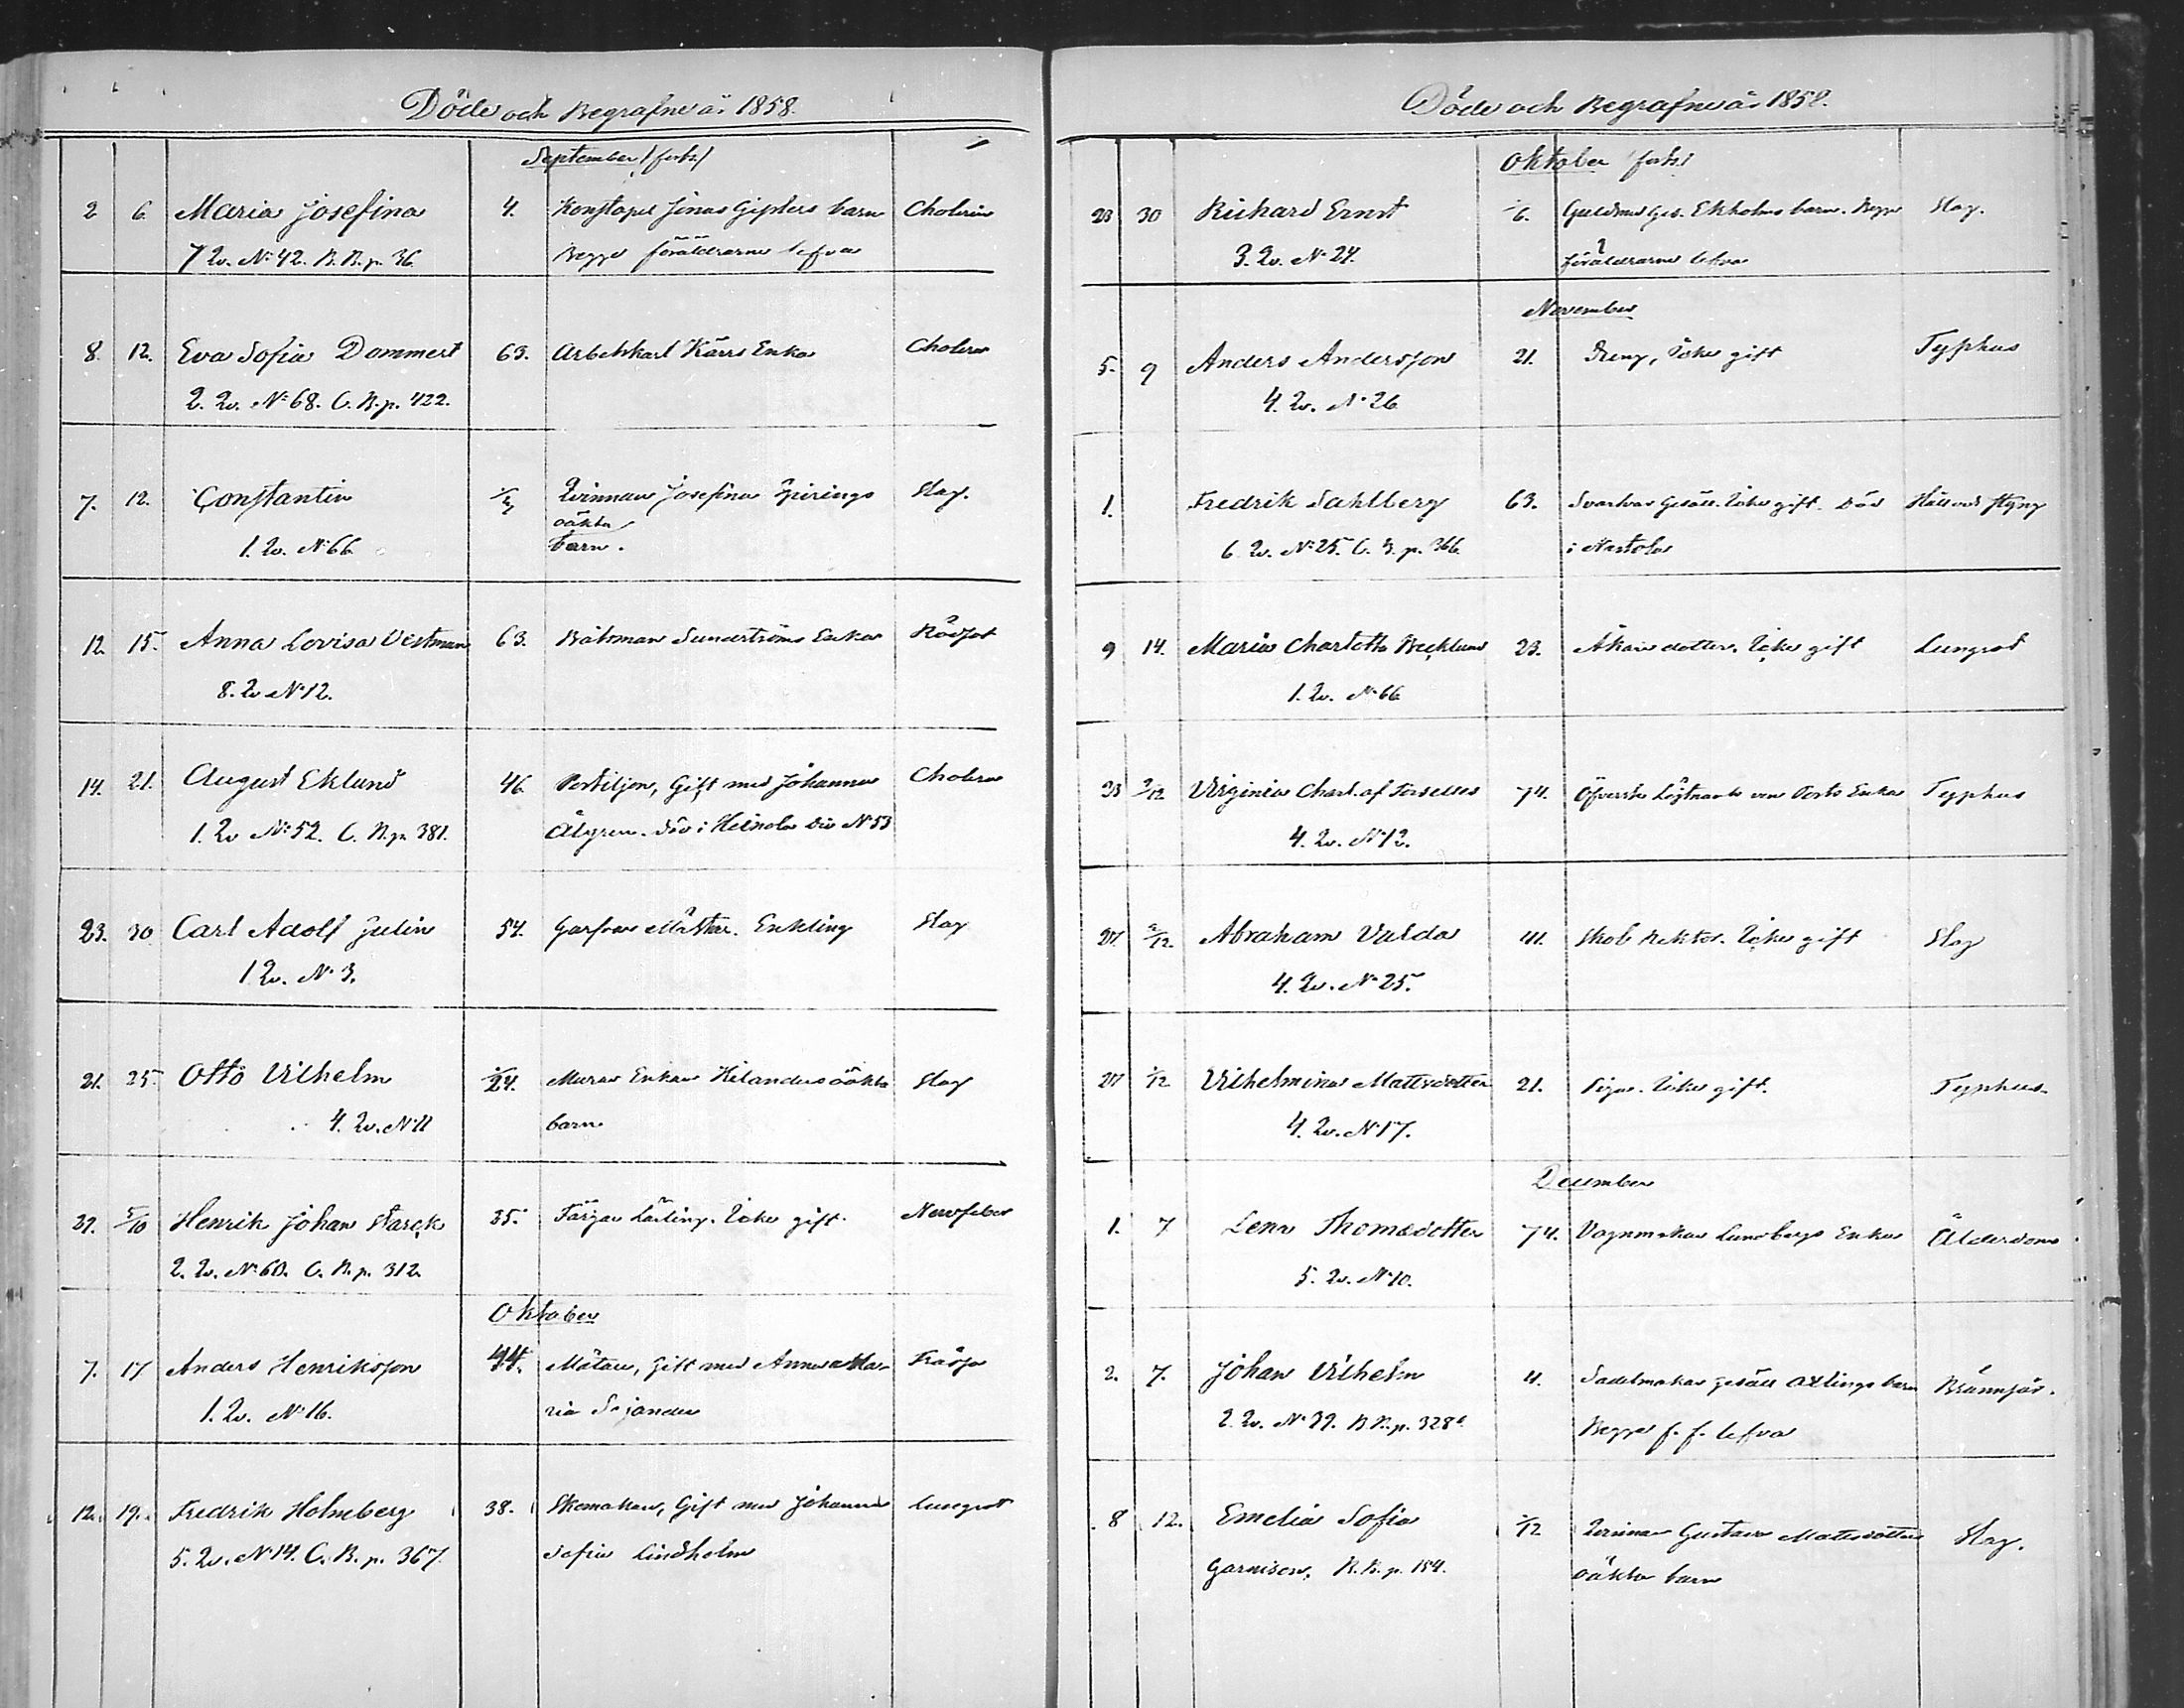 Döde och Begrafne år 1858.
September /forts/
2 6. Maria Josefina 4. Konstapel Jonas barn Cholerin
7 Qv. No 42. B.B.p. 36. Begge föräldrarne lefva
8. 12. Eva Sofia Dammert 63. Arbetskarl Kärrs Enka Cholera
2. Qv. No 68. C.B.p. 422.
7. 12. Constantin Qvinnan Josefina Spirings Slag.
oäkta
1. Qv. No 66 barn.
12. 15. Anna Lovisa Vestman 63. Båtsman Sundströms Enka Rödsot
8. Qv No 12.
14. 21. August Eklund 46. Postiljon, Gift med Johanna Cholera
1. Qv No 52. C.B.p. 381. Ålgren. död i Heinola No 53
23. 30 Carl Adolf Julin 54. Garfvare Mästar. Enkling Slag
1 Qv. No 3.
21. 25. Otto Vilhelm 1/24. Murar Enkan Hilanders oäkta Slag
4. Qv. No 11 barn
29. 5/10 Henrik Johan Starck 35. Färgare Lärling. Icke gift. Nervfeber
2. Qv. No 60. C.B.p. 312.
Oktober
7. 17 Anders Henriksson 44. Mätare, Gift med Anna Ma- Frossa
1. Qv. No 16. ria Sejander
12. 19. Fredrik Holmberg 38. Skomakare, Gift med Johanna Lungsot
5. Qv. No 14. C.B.p. 367. Sofia Lindholm
Döde och Begrafne år 1858.
Oktober forts.
23 30 Richard Ernst Guldsmed Ges. Ekholms barn. Begge Slag.
3. Qv. No 24. föräldrarne lefva
November
5. 9 Anders Andersson 21. Dreng, Icke gift Typhus
4. Qv. No 26
1. Fredrik Sahlberg 63. Svarfvar Gesäll. Icke gift. Död Håll och styng
6 Qv. No 25. C.B.p. 366. i Nastola
9 14. Maria Charlotta Becklund 23. Åkare dotter. Icke gift Lungsot
1. Qv. No 66
23 2/12 Virginia Charl. af Forselles 74. Öfverste Löjtnants von Enka Typhus
4. Qv. No 12.
27. 2/12. Abraham Valda 41. Skol Rektor. Icke gift Slag
4. Qv. No 25.
27 1/12 Vilhelmina Mattsdotter 21. Piga. Icke gift. Typhus.
4. Qv. No 17.
December
1. 7 Lena Thomasdotter 74. Vagnmakar Lundbergs Enka Ålderdom
5. Qv. No 10.
2. 7. Johan Vilhelm 4. Sadelmakar gesäll Axlings barn Brännsår.
2. Qv. No 39. B.B.p. 328 Begge f. f. lefva
8 12. Emelia Sofia 1/12 Qvinnan Gustava Mattsdotters Slag.
Garnison, B.B.p. 154. oäkta barn